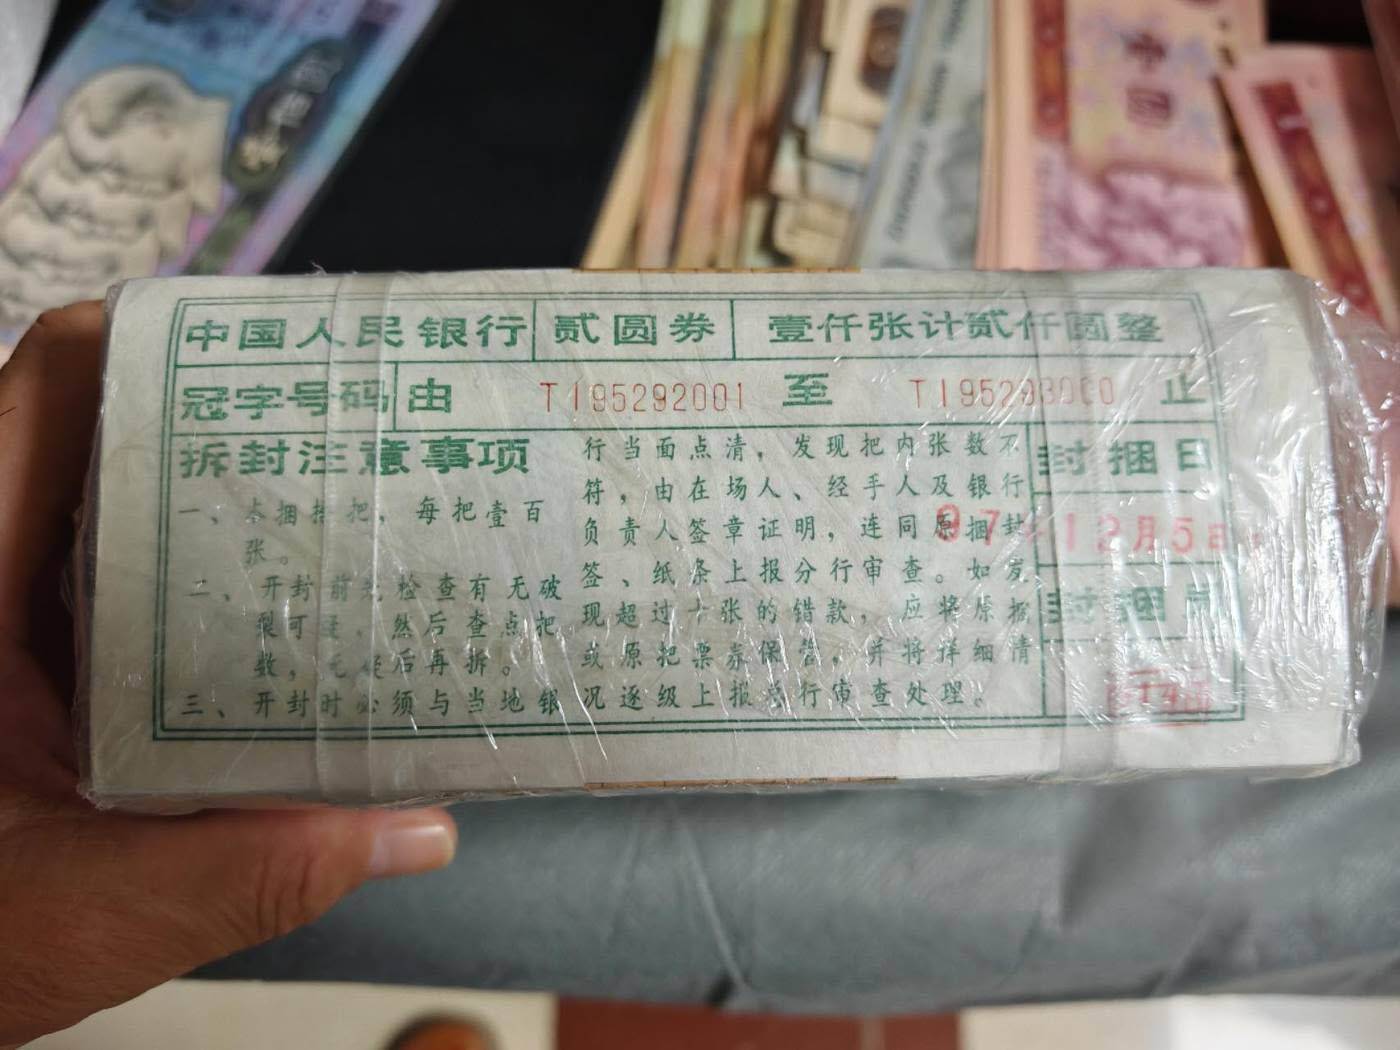 中国人民银行 贰圆券 壹仟张计贰仟圆整
冠字号码 由 TI95292001 至 TI95293000 止
拆封注意事项
一、本捆拾把，每把壹百
张。
二、开封前先检查有无破
裂可疑，然后查点把
数，无疑后再拆。
三、开封时必须与当地银
行当面点清，发现把内张数不
符，由在场人、经手人及银行
负责人签章证明，连同原捆封
签、纸条上报分行审查。如发
现超过十张的错款，应将原捆
或原把票券保管，并将详细情
况逐级上报总行审查处理。
封捆日
97年12月5日
封捆员
壹圆